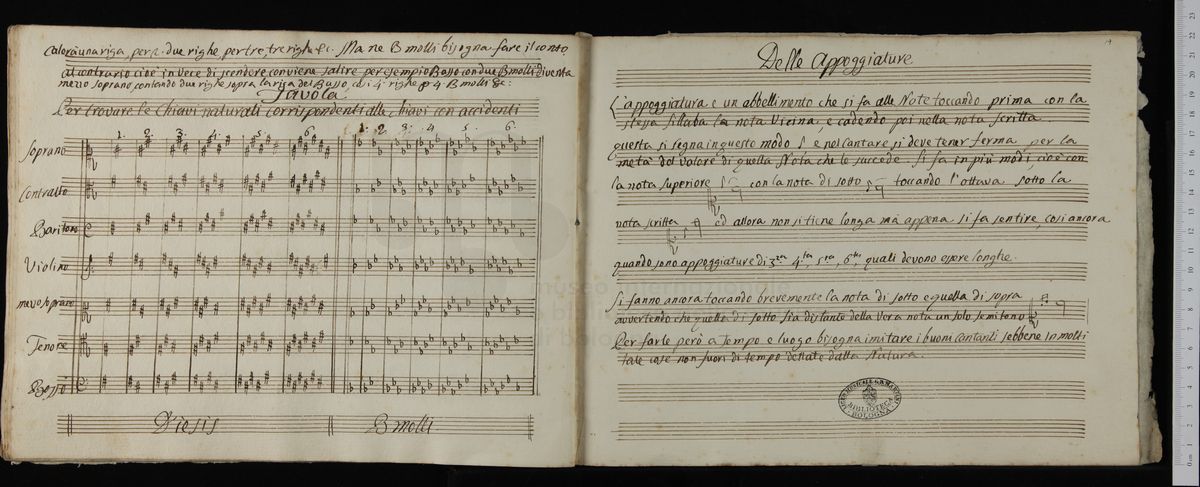 calorà una riga, per 2. due righe per tre, tre righe &c. Ma ne B molli bisogna fare il conto
al contrario cioè in vece di scendere conviene salire per esempio Basso con due B molli diventa
mezzo soprano contando due righe sopra la riga del Basso, così 4 righe p 4 B molli &c:
Tavola
Per trovare le Chiavi naturali corrispondenti alle chiavi con accidenti
1. 2. 3. 4. 5. 6. 1. 2. 3. 4. 5. 6.
Soprano
Contralto
Baritono
Violino
mezzo soprano
Tenore
Basso
Diesis B molli
Delle Appoggiature
L'appoggiatura è un abbellimento che si fa alle Note toccando prima con la
stessa sillaba la nota Vicina, e cadendo poi nella nota scritta
questa si segna in questo modo e nel cantare si deve tener ferma per la
metà del valore di quella Nota che le succede. Si fa in più modi, cioè con
la nota superiore con la nota di sotto toccando l'ottava sotto la
nota scritta ed allora non si tiene longa ma appena si fa sentire, così ancora
quando sono appoggiature di 3za 4ta, 5ta, 6ta, quali devono essere longhe.
Si fanno ancora toccando brevemente la nota di sotto e quella di sopra
avvertendo che quella di sotto sia distante della vera nota un solo semitono
Per farle però a Tempo e luogo bisogna imitare i buoni Cantanti sebbene in molti
tale cose non fuori di tempo dettate dalla Natura.
museo internazionale
BIBLIOTECA
BOLOGNA